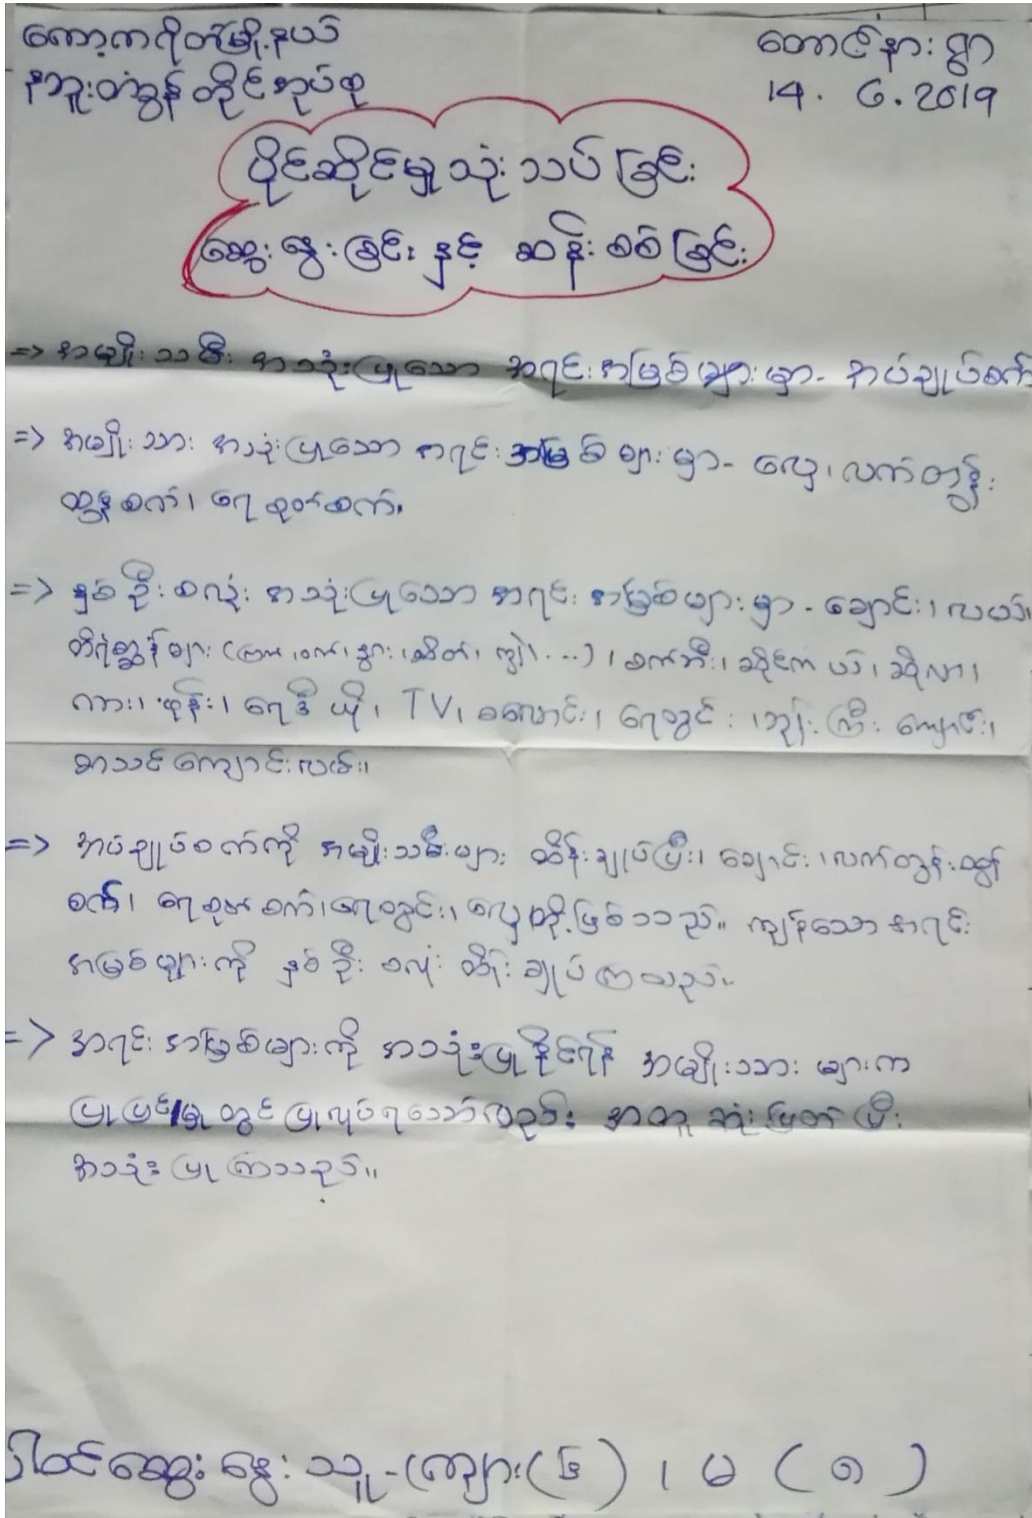 ကော့ကရိတ်မြို့နယ်
တောင်နားရွာ
နဘူးတံခွန်တိုင်အုပ်စု
14. 6. 2019
ပိုင်ဆိုင်မှုသုံးသပ်ခြင်း
ဆွေးနွေးခြင်းနှင့် ဆန်းစစ်ခြင်း
=> အမျိုးသမီး အသုံးပြုသော အရင်းအမြစ်များမှာ- အပ်ချုပ်စက်
=> အမျိုးသား အသုံးပြုသော အရင်းအမြစ်များမှာ- လှေ၊ လက်တွန်း
ထွန်စက်၊ ရေစုတ်စက်
=> နှစ်ဦးစလုံး အသုံးပြုသော အရင်းအမြစ်များမှာ- ချောင်း၊ လယ်၊
တိရစ္ဆာန်များ (ကြက်၊ ဝက်၊ နွား၊ ဆိတ်၊ ကျွဲ၊ ...)၊ စက်ဘီး၊ ဆိုင်ကယ်၊ ဆိုလာ၊
ကား၊ ဖုန်း၊ ရေဒီယို၊ TV၊ စလောင်း၊ ရေတွင်း၊ ဘုန်းကြီးကျောင်း၊
စာသင်ကျောင်း
=> အပ်ချုပ်စက်ကို အမျိုးသမီးများ ထိန်းချုပ်ပြီး၊ ချောင်း၊ လက်တွန်းထွန်
စက်၊ ရေစုတ်စက်၊ ရေတွင်း၊ လှေတို့ဖြစ်သည်။ ကျန်သောအရင်း
အမြစ်များကို နှစ်ဦးစလုံး ထိန်းချုပ်ကြသည်။
=> အရင်းအမြစ်များကို အသုံးပြုနိုင်ရန် အမျိုးသားများက
ပြုပြင်မှုတွင်ပြုလုပ်ရသော်လည်း အတူဆုံးဖြတ်ပြီး
အသုံးပြုကြသည်။
ပါဝင်ဆွေးနွေးသူ- ကျား(၆)၊ မ(၁)